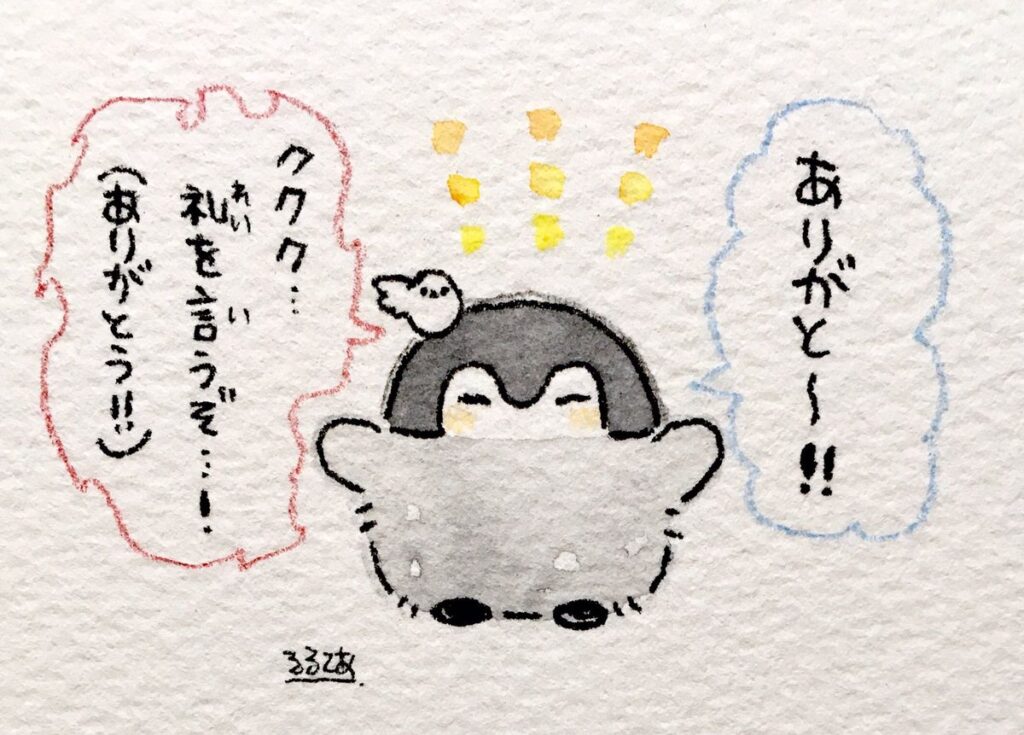 ありがと〜!!
ククク…
礼を言うぞ…!
れい
い
(ありがとう!!)
るるてあ